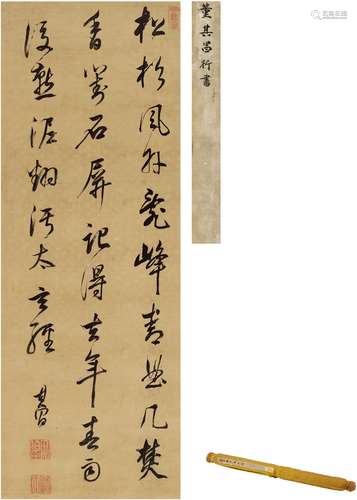 松杉風外亂峰青曲几焚
香對石屏記得去年春雨
後燕泥翻污太玄經 其昌
董其昌行書